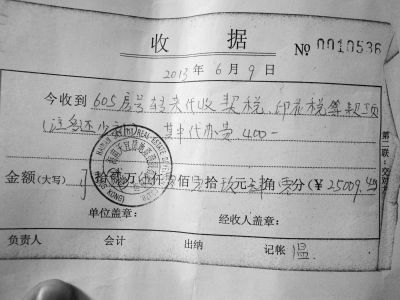 收 据
No 0010536
2013 年 6 月 9 日
今收到 605 房号 代收 契税、印花税等款项
(注多还少 其中代办费 400一
第二联:交
金额(大写) 拾 万 仟零佰零拾玖元 角零分(¥ 25009.
单位盖章: 经收人盖章:
负责人 会计 出纳 记帐 温